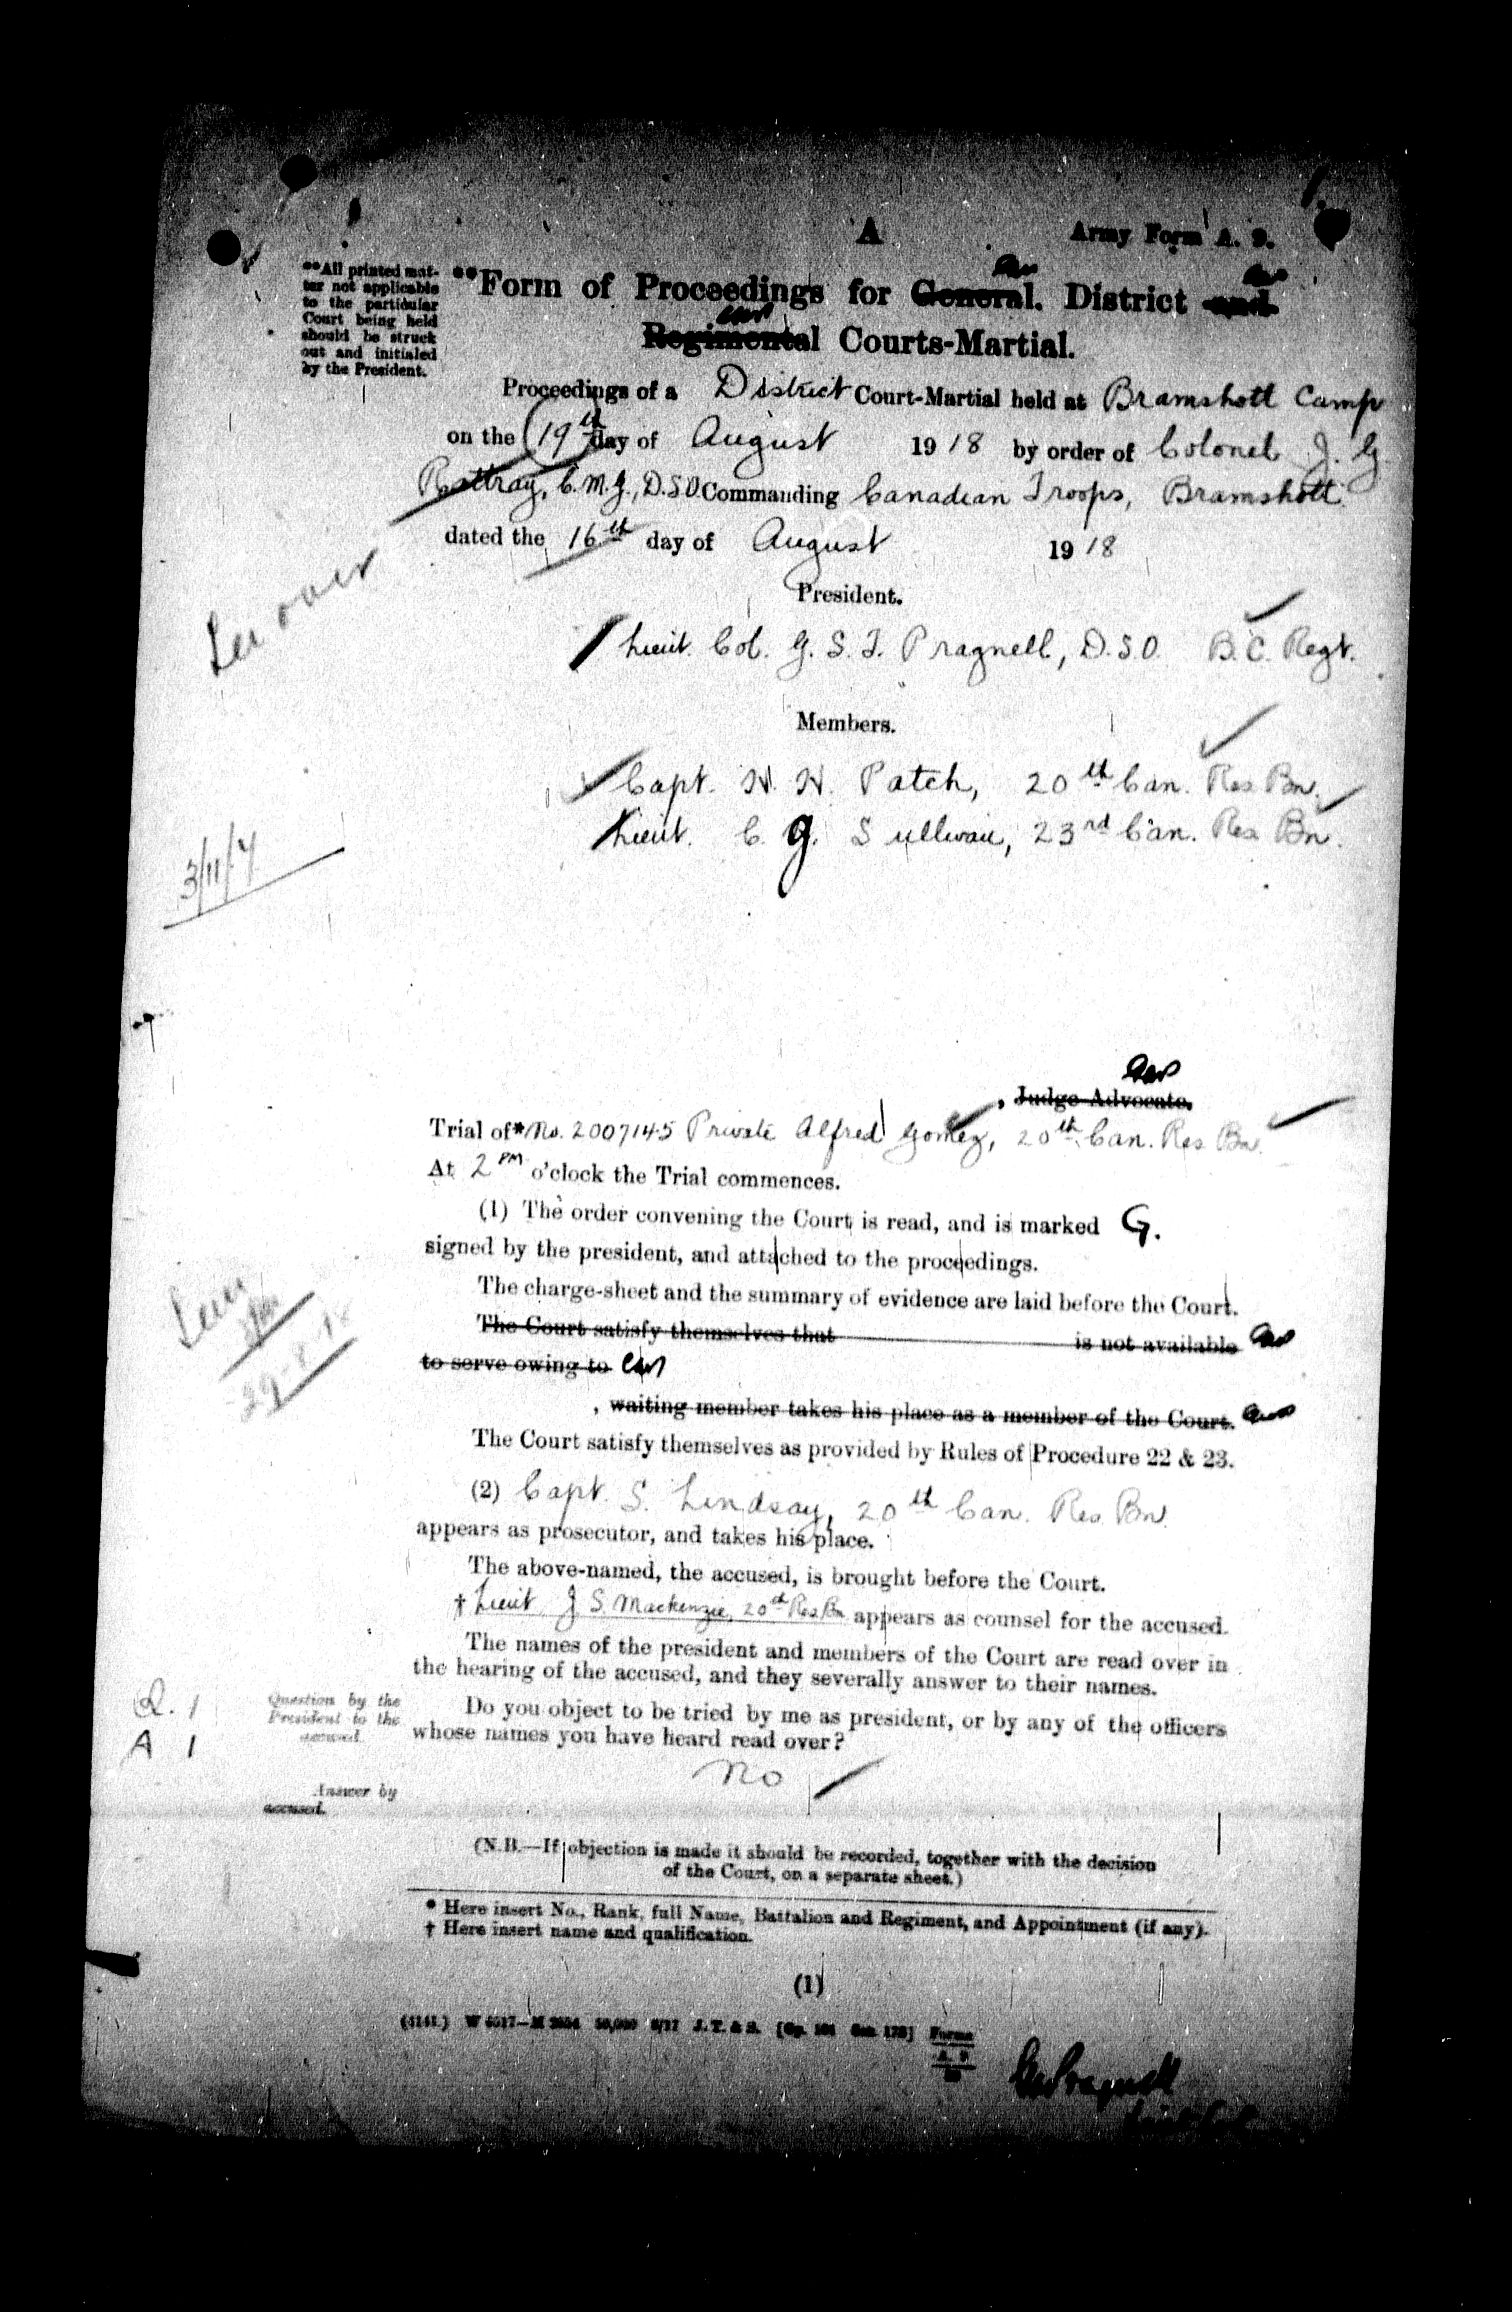 A
Army Form A. 9.
**All printed mat-
ter not applicable
to the particular
Court being held
should be struck
out and initialed
by the President.
**Form of Proceedings for General. District and
Regimental Courts-Martial.
Proceedings of a District Court-Martial held at Bramshott Camp
on the 19th day of August 1918 by order of Colonel J. G
Rattray, C.M.G., D.S.O. Commanding Canadian Troops, Bramshott
dated the 16th day of August 1918
See over
President.
Lieut. Col. G. S. T. Pragnell, D.S.O. B.C. Regt.
Members.
Capt. H. H. Patch, 20th Can. Res Bn.
Lieut. C. G. Sullivan, 23rd Can. Res Bn.
3/11/7
, Judge-Advocate.
Trial of* No. 2007145 Private Alfred Gomez, 20th Can. Res Bn.
At 2 PM o'clock the Trial commences.
(1) The order convening the Court is read, and is marked G.
signed by the president, and attached to the proceedings.
The charge-sheet and the summary of evidence are laid before the Court.
The Court satisfy themselves that is not available
to serve owing to
, waiting member takes his place as a member of the Court.
29-8-18
The Court satisfy themselves as provided by Rules of Procedure 22 & 23.
(2) Capt. S. Lindsay, 20th Can. Res. Bn.
appears as prosecutor, and takes his place.
The above-named, the accused, is brought before the Court.
† Lieut J S. Mackenzie, 20th Res Bn appears as counsel for the accused.
The names of the president and members of the Court are read over in
the hearing of the accused, and they severally answer to their names.
Q. 1
A 1
Question by the
President to the
accused.
Do you object to be tried by me as president, or by any of the officers
whose names you have heard read over?
No
Answer by
accused.
(N.B.—If objection is made it should be recorded, together with the decision
of the Court, on a separate sheet.)
* Here insert No., Rank, full Name, Battalion and Regiment, and Appointment (if any).
† Here insert name and qualification.
(1)
J. T. & S.
Forms
A. 9
GSPragnell